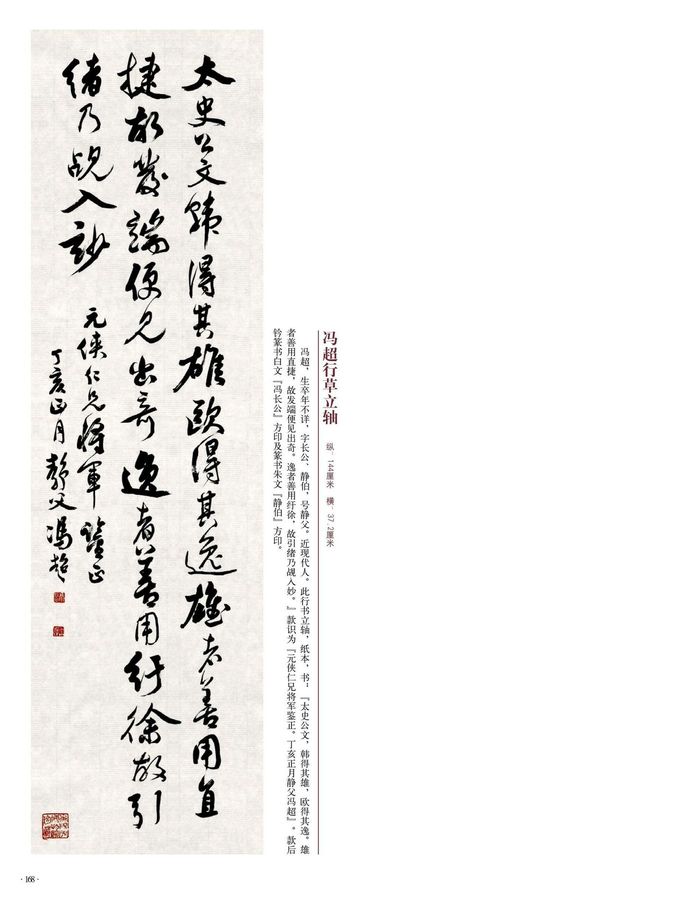 冯超行草立轴
纵：144厘米 横：37.2厘米
冯超，生卒年不详，字长公、静伯，号静父。近现代人。此行书立轴，纸本，书：『太史公文，韩得其雄，欧得其逸。雄
者善用直捷，故发端便见出奇。逸者善用纡徐，故引绪乃觇入妙。』款识为『元侠仁兄将军鉴正。丁亥正月静父冯超』。款后
钤篆书白文『冯长公』方印及篆书朱文『静伯』方印。
太史公文韩得其雄欧得其逸雄者善用直
捷故发端便见出奇逸者善用纡徐故引
绪乃觇入妙
元侠仁兄将軍鑒正
丁亥正月静父冯超
·168·